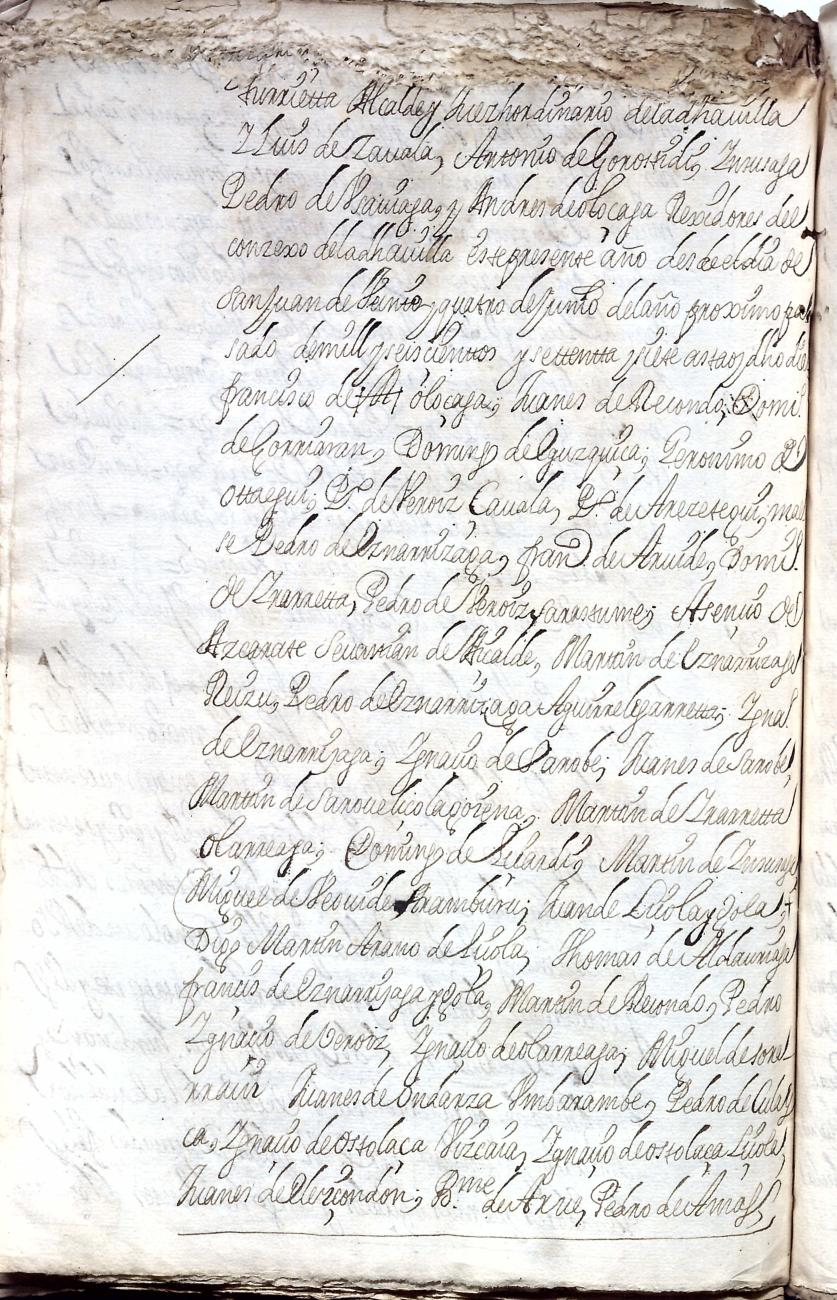 Yurrietta Alcalde y Juez hordinario deladha villa
Y Luis de Zavala, Antonio de Gorostidi, Ynusaga
Pedro de Vaiuiaga, y Andres de olocaga Rexidores del
conzexo deladha uilla este presente año desde el dia de
san Juan de Veinte y quatro de Junio del año proximo pa
sado demill y seiscientos y settentta y siete asta oy dho dia
francisco de olocaga; Juanes de Recondo; Domi.º
de Gorriaran, Domingo de Eguzquica; Geronimo de
ottaegui; P.º de Veroiz Cavala, P.º de Arezetegui, mae
se Pedro de Oznarrizaga, fran.º de Aruide, Domi.º
de Yrarretta, Pedro de Veroiz, Asenvio de
Azcarate Seuastian de Vicalde, Martin de Oznarrizaga
Reizu, Pedro de Oznarrizaga Aguirrelegarretta; Ygna.º
de Oznarrijaga; Ygnacio de Sarobe; Juanes de Sarobe,
Martin de Saroue licolagorena; Martin de Yrarretta
olarreaga; Domingo de Lilardi; Martin de
Miguel de Veouide Aramburu; Juan de Liuola y dola
Diego Martin Aramo de Liuola; Thomas de Aldaurriaga
francis de Oznarrijaga y dola, Martin de Recondo, Pedro
Ygnacio de Veroiz, Ygnacio de olarreaga; Miguel de sorel
rrain Juanes de Ondarza Vmbarrambe, Pedro de Culas
ca, Ygnacio de ostolaca Vizcaia, Ygnacio de ostolaca Liuola,
Juanes de Elorcondon; B.me de Arrue, Pedro de Amas